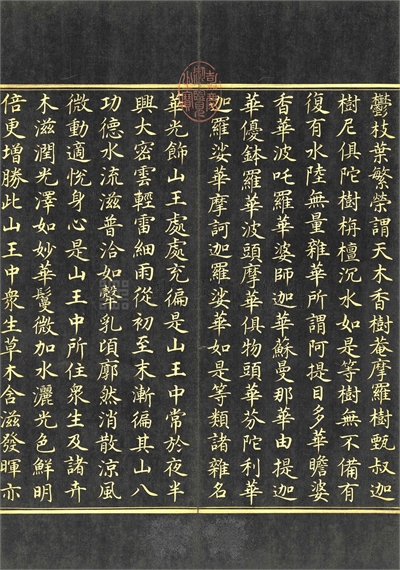 鬱枝葉繁榮謂天木香樹菴摩羅樹甄叔迦
樹尼俱陀樹栴檀沉水如是等樹無不備有
復有水陸無量雜華所謂阿提目多華瞻婆
香華波吒羅華婆師迦華蘇曼那華由提迦
華優鉢羅華波頭摩華俱物頭華芬陀利華
迦羅娑華摩訶迦羅娑華如是等類諸雜名
華光飾山王處處充徧是山王中常於夜半
興大密雲輕雷細雨從初至末漸徧其山八
功德水流滋普洽如𤛓乳頃廓然消散涼風
微動適悅身心是山王中所住衆生及諸卉
木滋潤光澤如妙華鬘微加水灑光色鮮明
倍更增勝此山王中衆生草木含滋發暉亦